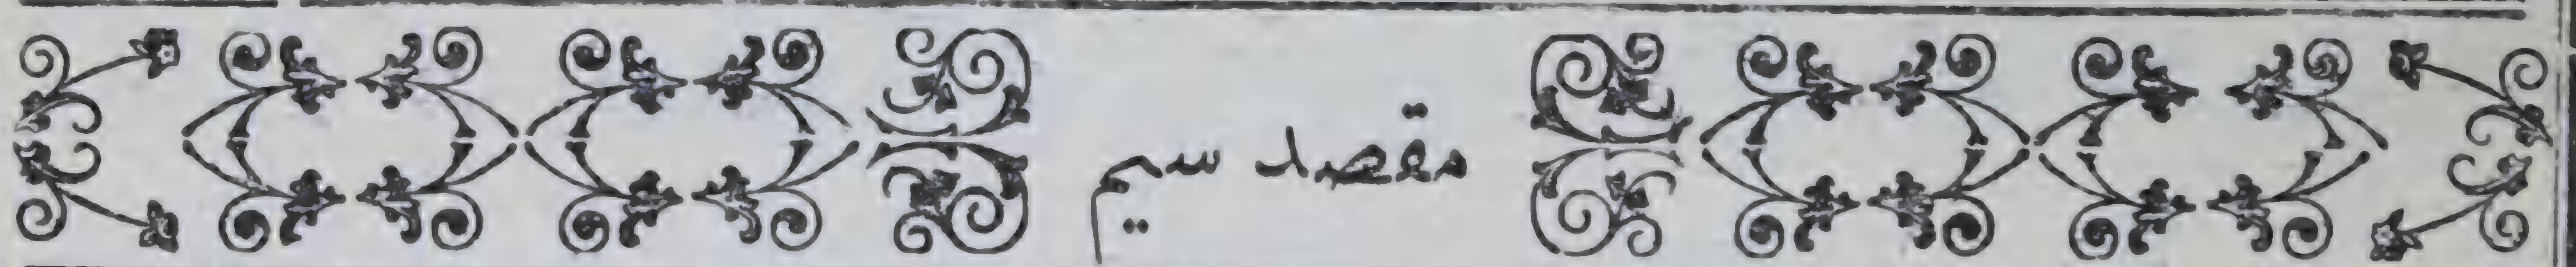 مقصد سیم